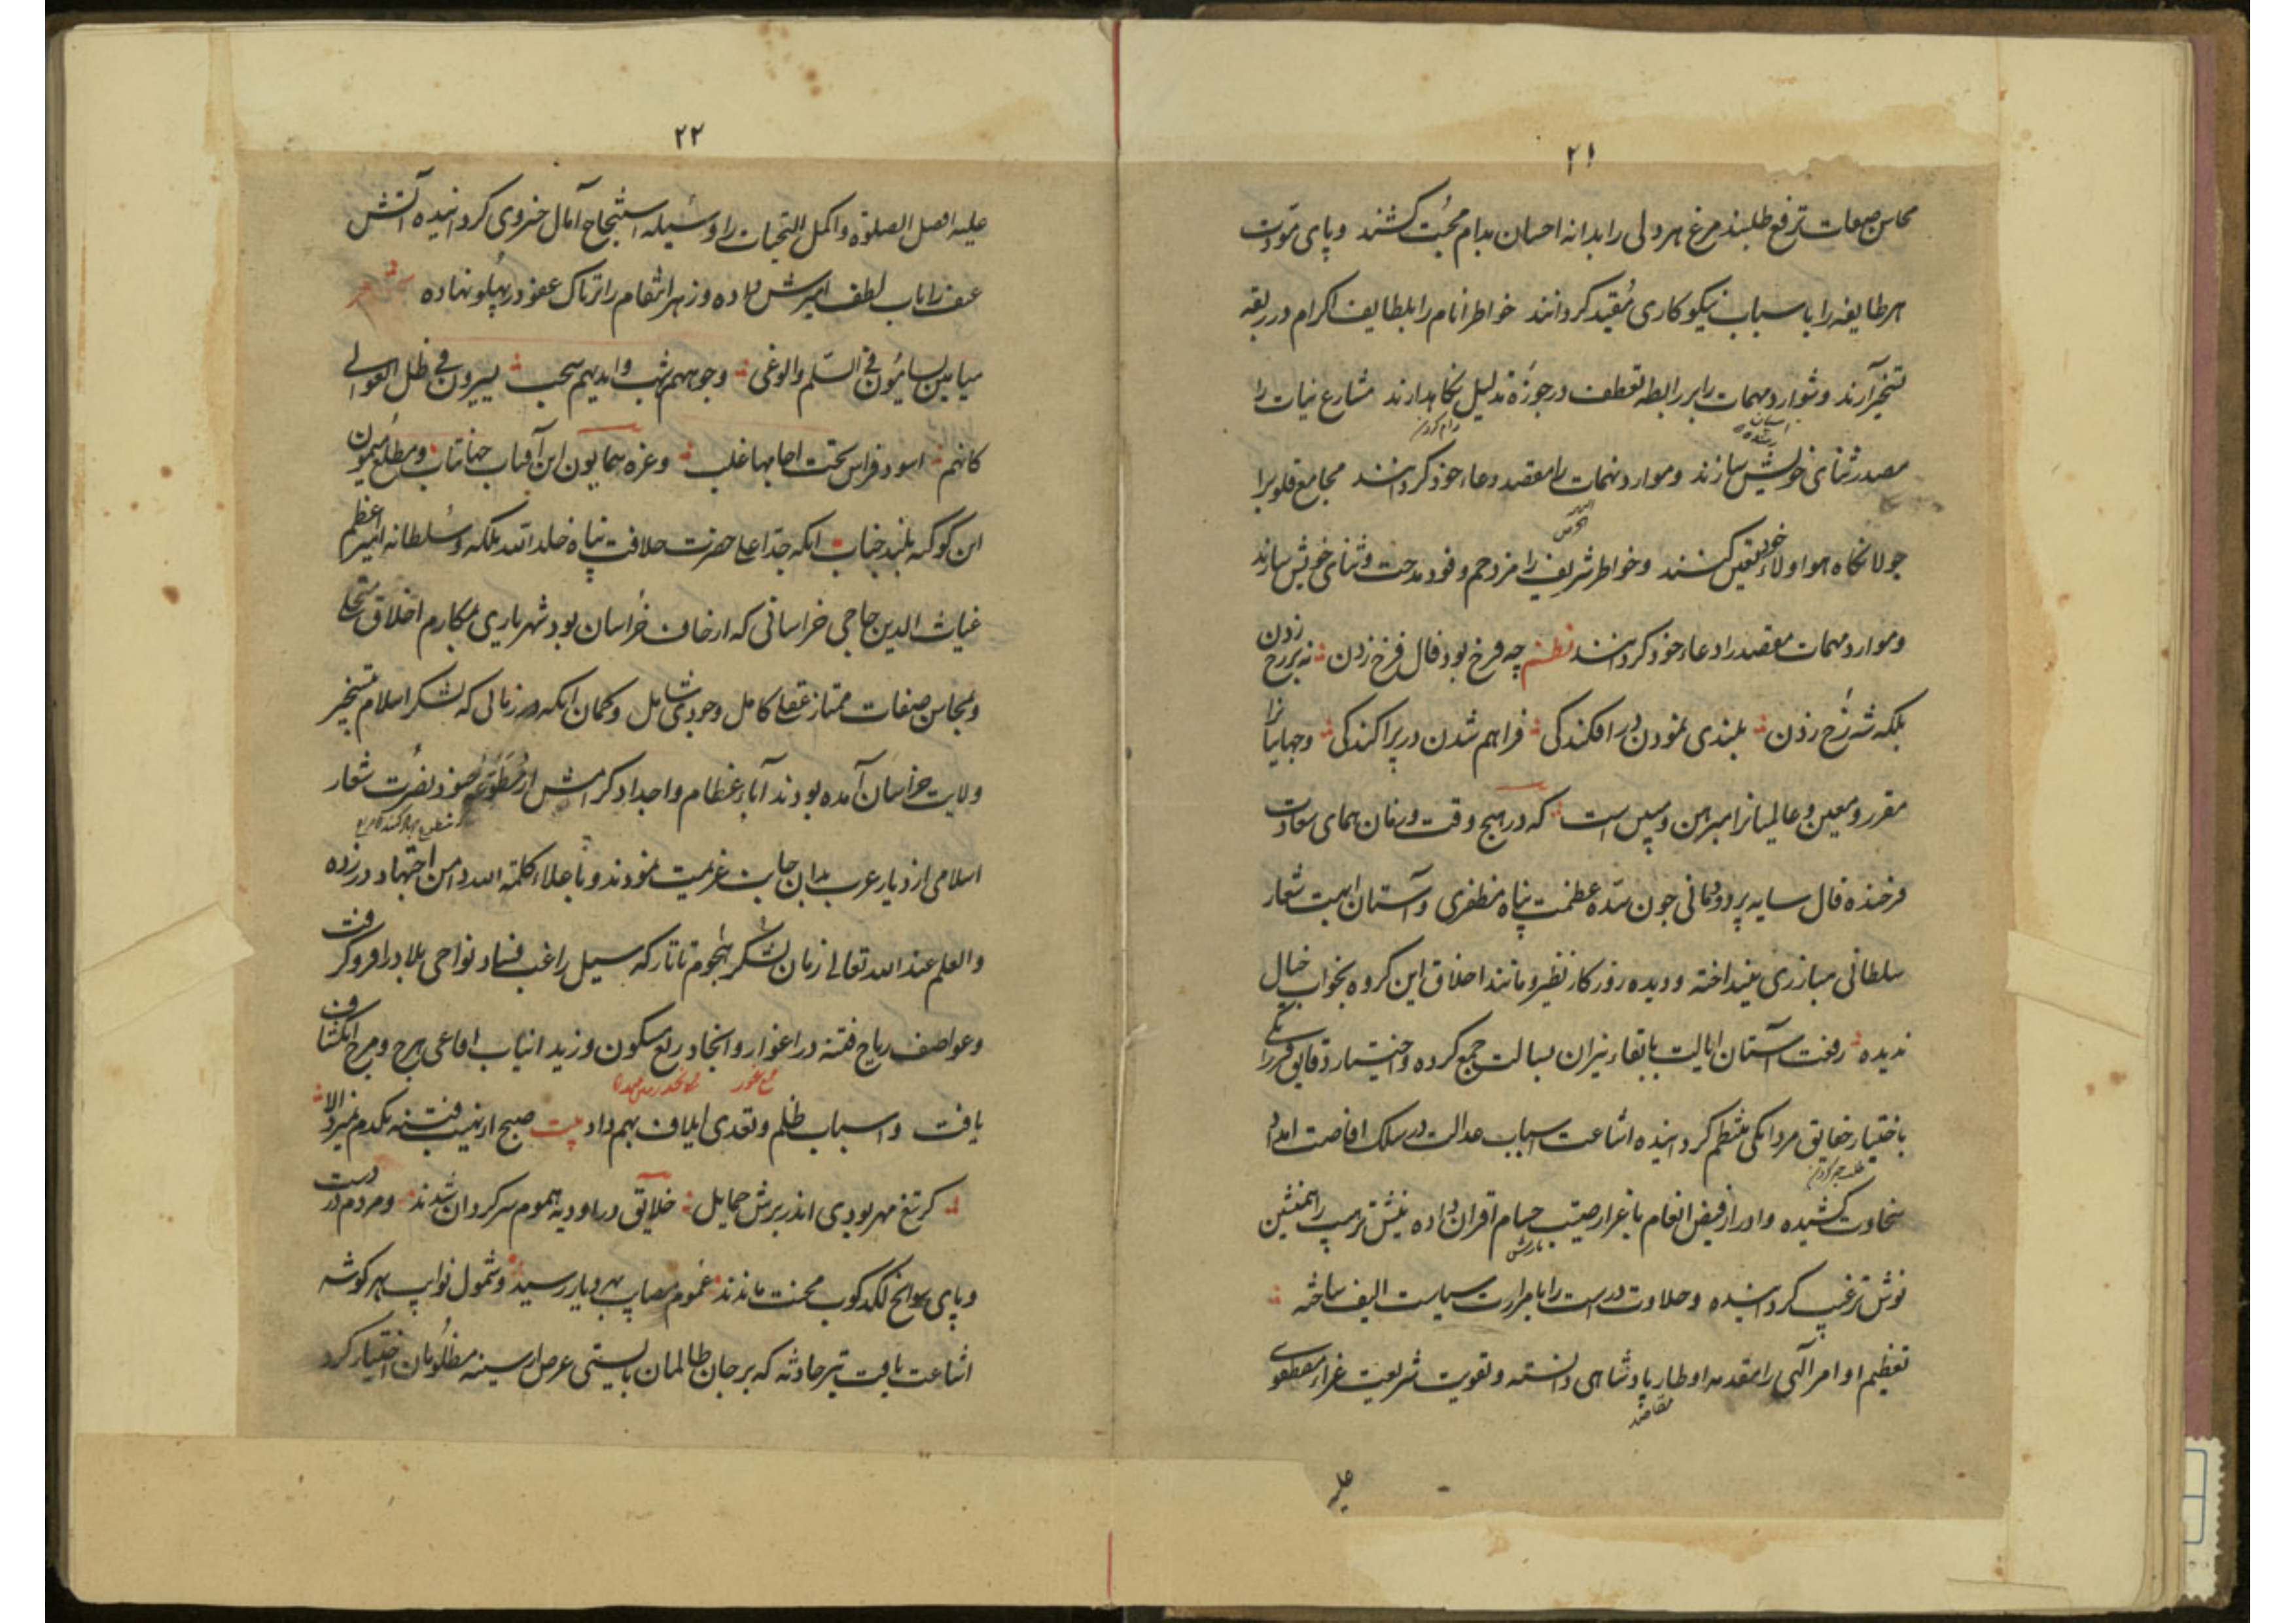 ۲۱
محاسن صفات ترفع طلبند مرغ هر دلی را بدانه احسان بدام محبت کشند و پای مودت
هر طایفه را باسباب نیکوکاری مقید کردانند خواطر انام را بلطایف اکرام در ربقه
تسخیر آرند و شوارد مهمات را برابطه تعطف در حوزه تذلیل نکاهدارند مشارع نیات را
رام کردن
مصدر ثنای خویش سازند و موارد نهمات را مقصد دعاء خود کردانند مجامع قلوب را
جولانکاه هوا و ولاء خود تعیین کنند و خواطر شریف را مزدحم وفود مدحت و ثنای خویش سازند
و موارد مهمات مقصد را دعاء خود کردانند نظم چه فرخ بود فال فرخ زدن نه بر رخ زدن
بلکه شه رخ زدن بلندی نمودن در افکندکی فراهم شدن در پراکندکی و جهانیان را
مقرر و معین و عالمیان را مبرهن و مبین است که در هیچ وقت و زمان همای سعادت
فرخنده فال سایه بر دودمانی چون سده عظمت پناه مظفری و آستان ابهت شعار
سلطانی مبارزی نینداخته و دیده روزکار نظیر و مانند اخلاق این کروه بخواب خیال
ندیده رفعت آستان ایالت بایقاد نیران بسالت جمع کرده و اختیار دقایق را
باختیار حقایق مردانکی منتظم کردانیده اشاعت اسباب عدالت در سلک افاضت امداد
سخاوت کشیده و ادرار فیض انعام با غرار حسام اقران داده نیش ترهیب را همنشین
نوش ترغیب کردانیده و حلاوت را با مرارت سیاست الیف ساخته
تعظیم اوامر الهی را مقدمه اوطار پادشاهی دانسته و تقویت شریعت غراء مصطفوی
مقاصد
علیه
۲۲
علیه افضل الصلوة و اکمل التحیات را وسیله استنجاح آمال خسروی کردانیده آتش
عنف را باب لطف آمیزش داده و زهر انتقام را تریاک عفو در پهلو نهاده شعر
میامین بسامون فی السلم والوغی وجوههم شهب و ایدیهم سحب یسیرون فی ظل العوالی
کانهم اسود فراس تحت اجامها غلب و غره همایون این آفتاب جهانتاب و مطلع میمون
این کوکبه بلند جناب آنکه جد اعلی حضرت خلافت پناه خلد الله ملکه و سلطانه امیر اعظم
غیاث الدین حاجی خراسانی که از خاف خراسان بود شهریاری بمکارم اخلاق متحلی
و بمحاسن صفات ممتاز عقلی کامل و جودی شامل و کمان آنکه در زمانی که لشکر اسلام بتسخیر
ولایت خراسان آمده بودند آباء عظام و اجداد کرامش از مطوعه جنود نصرت شعار
اسلامی از دیار عرب بدان جانب عزیمت نمودند و باعلاء کلمة الله دامن اجتهاد در زده
والعلم عند الله تعالی زمان لشکر هجوم تاتار که سیل راغب فساد نواحی بلاد را فرو کرفت
و عواصف ریاح فتنه در اغوار و انجاد ربع مسکون وزید انیاب افاعی هرج و مرج انکشاف
جمع غور
یافت و اسباب ظلم و تعدی ایلاف بهم داد بیت صبح از نهیب فتنه یکدم نمیزد الا
کر تیغ مهر بودی اندر برش حمایل خلایق در اودیه هموم سرکردان شدند و مردم در دست
و پای سوانح لکدکوب محنت ماندند عموم مصایب بهر دیار رسید و شمول نوایب بهر کوشه
اشاعت یافت تیر حادثه که بر جان ظالمان بایستی عرض از سینه مظلومان اختیار کرد